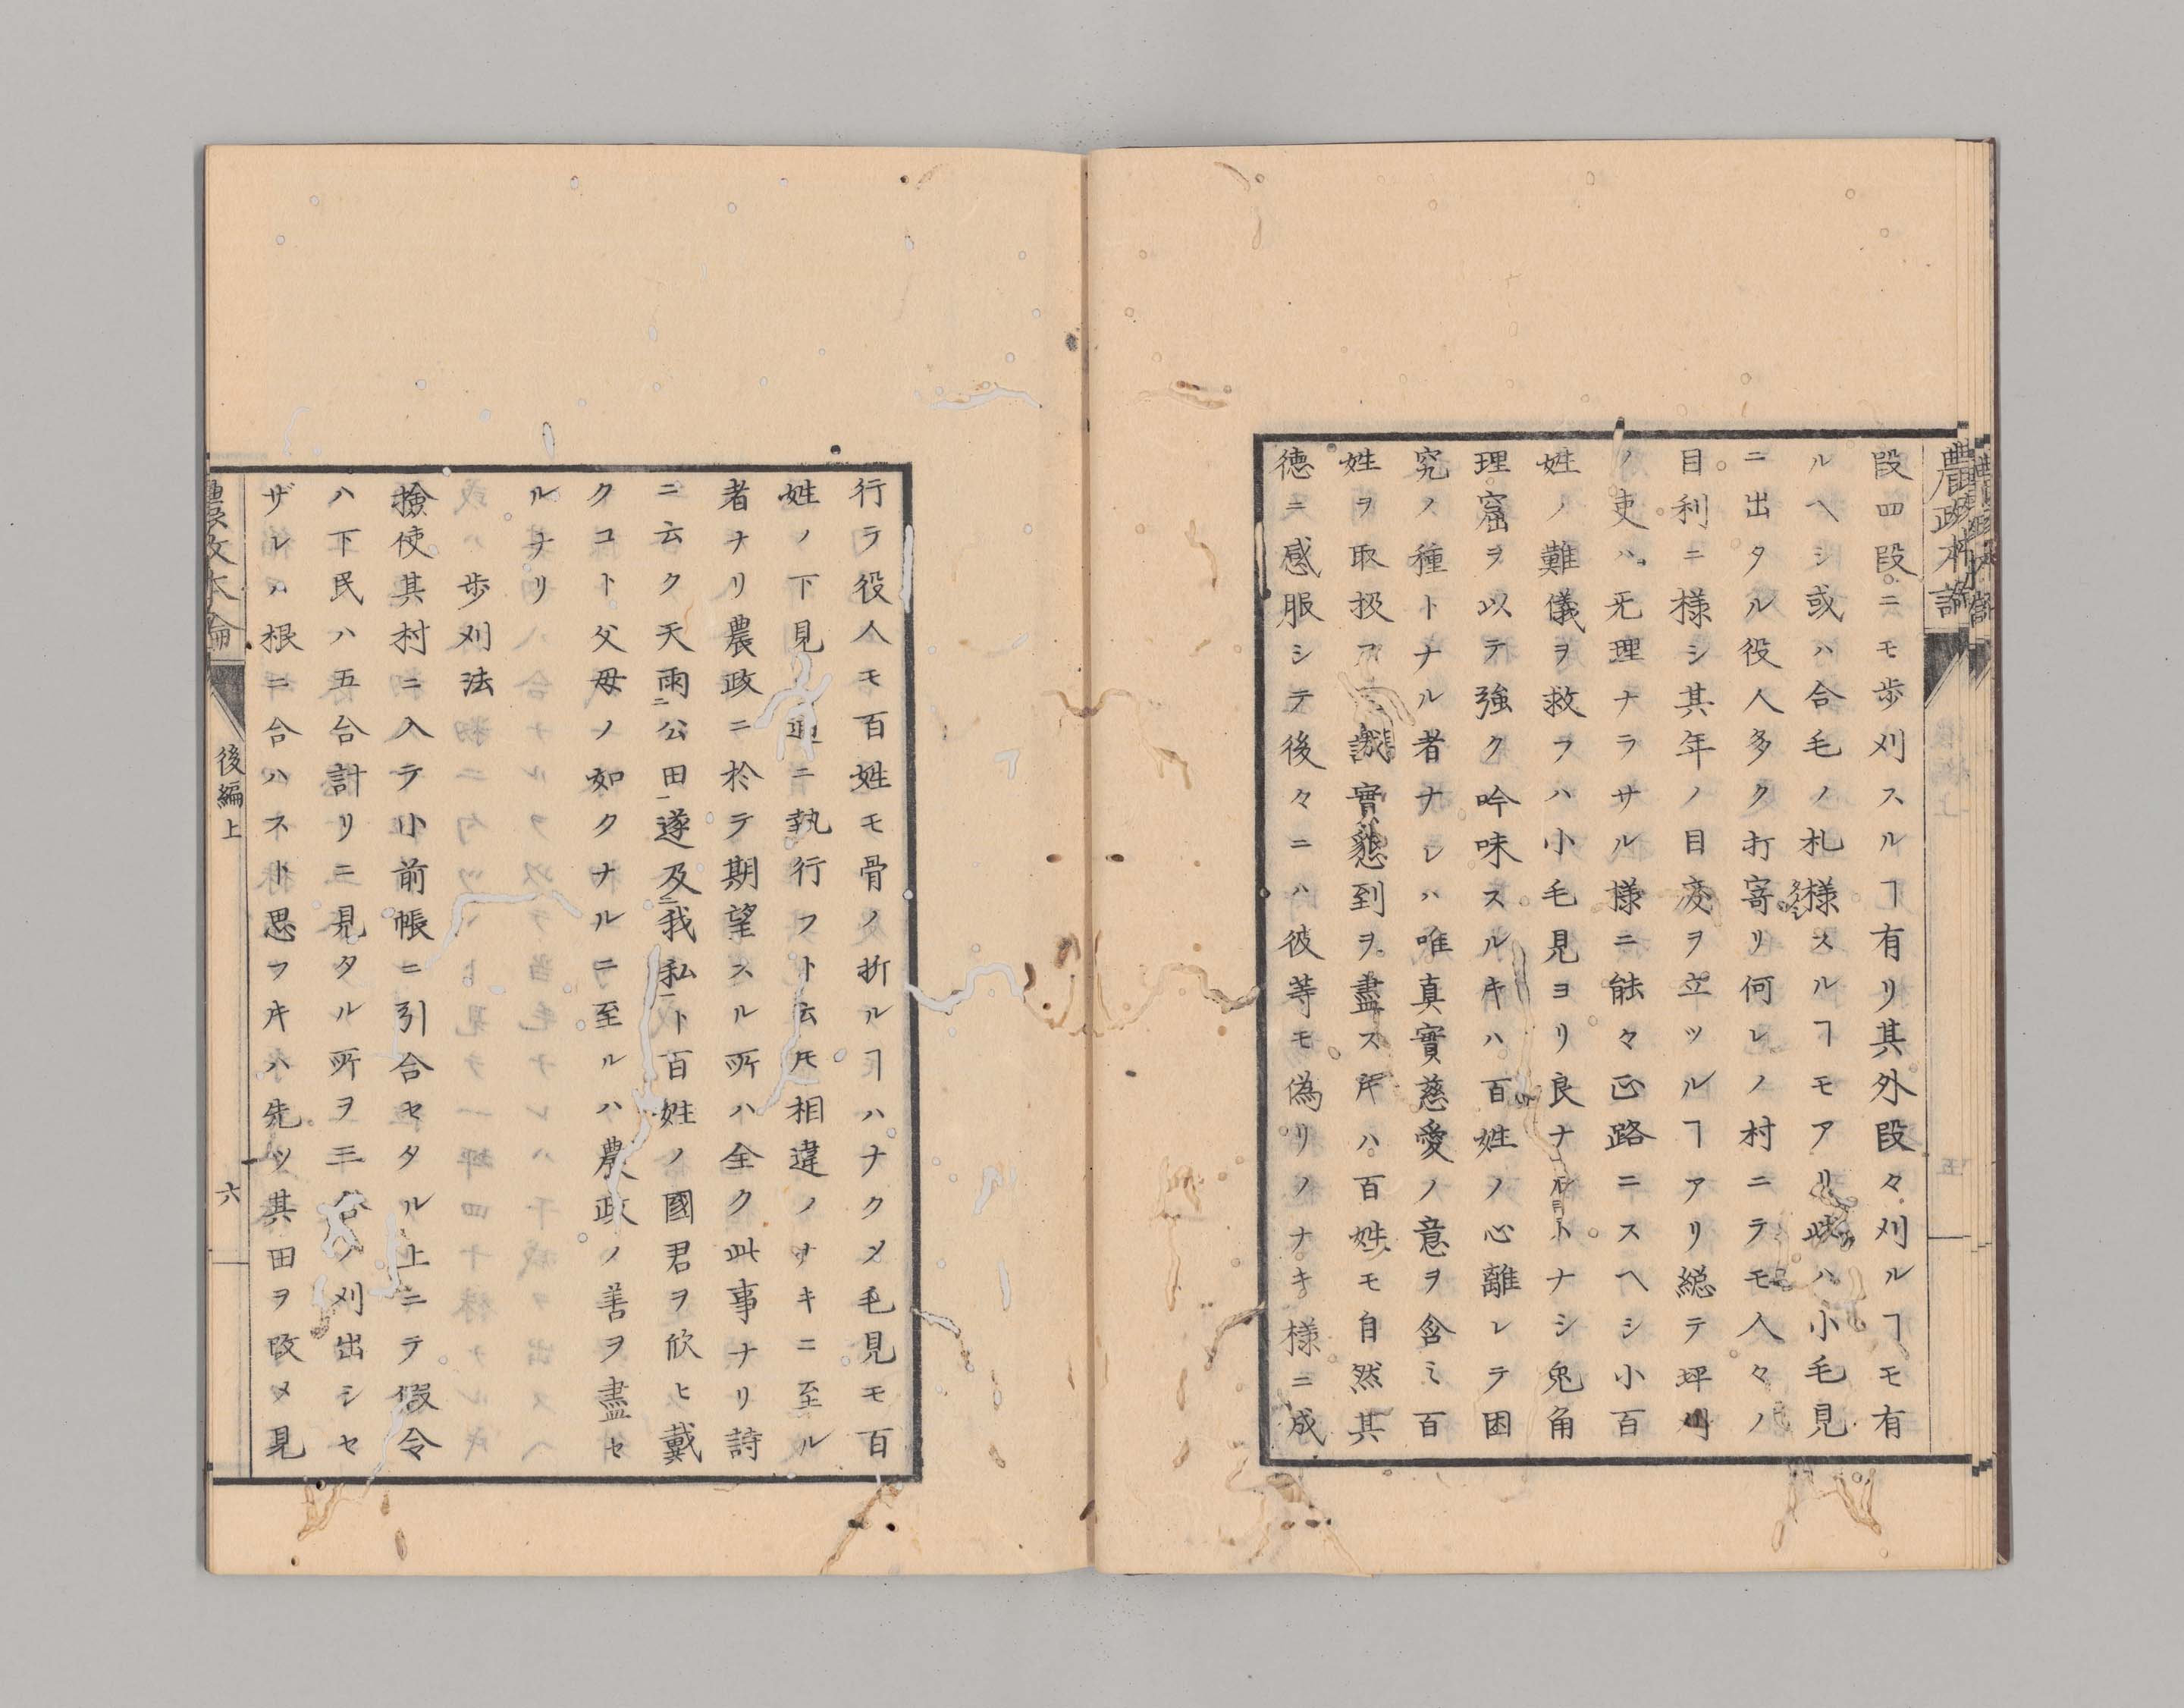 農政本論
段四段ニモ歩刈スルヿ有リ其外段々刈ルヿモ有
ルヘシ或ハ合毛ノ札様スルヿモアリ此ハ小毛見
ニ出タル役人多ク打寄リ何レノ村ニラモ人々ノ
目利ニ様シ其年ノ目変ヲ立ツルヿアリ総テ坪刈
ノ吏ハ无理ナラサル様ニ能々正路ニスヘシ小百
姓ノ難儀ヲ救フハ小毛見ヨリ良ナルハナシ兎角
理窟ヲ以テ強ク吟味スルキハ百姓ノ心離レテ困
究ノ種トナル者ナレハ唯真實慈愛ノ意ヲ含ミ百
姓ヲ取扱フニ誠實懇到ヲ盡ス片ハ百姓モ自然其
徳ニ感服シテ後々ニハ彼等モ偽リノナキ様ニ成
行テ役人モ百姓モ骨ノ折ルヿハナクメ毛見モ百
姓ノ下見通ニ執行フト云𪜈相違ノナキニ至ル
者ナリ農政ニ於テ期望スル所ハ全ク此事ナリ詩
ニ云ク天雨ニ公田一遂及ニ我私一ト百姓ノ國君ヲ欣ヒ戴
クコト父母ノ如クナルニ至ルハ農政ノ善ヲ盡セ
ルナリ
歩刈法
撿使其村ニ入テ小前帳ニ引合セタル上ニテ假令
ハ下民ハ五合計リニ見タル所ヲ三合ノ刈出シセ
ザレハ根ニ合ハスト思フキハ先ツ其田ヲ改メ見
農政本論
後編上
六